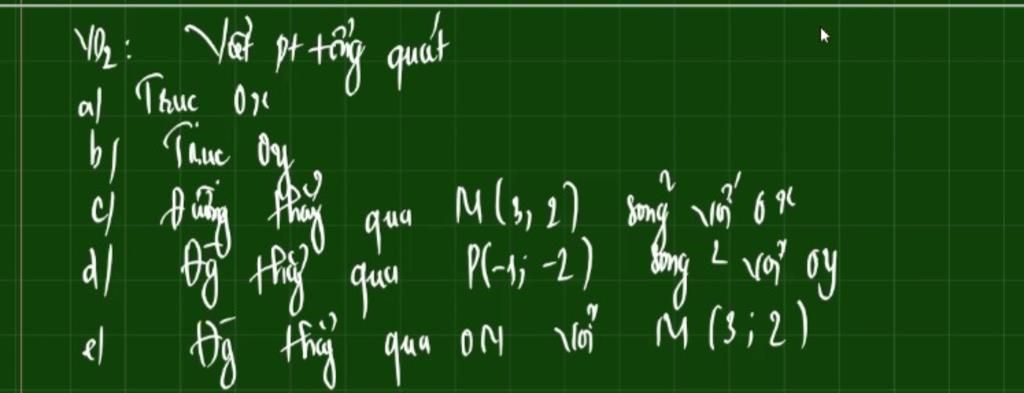 VD2: Viết pt tổng quát
a) Trục Ox
b) Trục Oy
c) Đường thẳng qua M(3; 2) song² với Ox
d) Đg thẳng qua P(-1; -2) song² với Oy
e) Đg thẳng qua OM với M(3; 2)